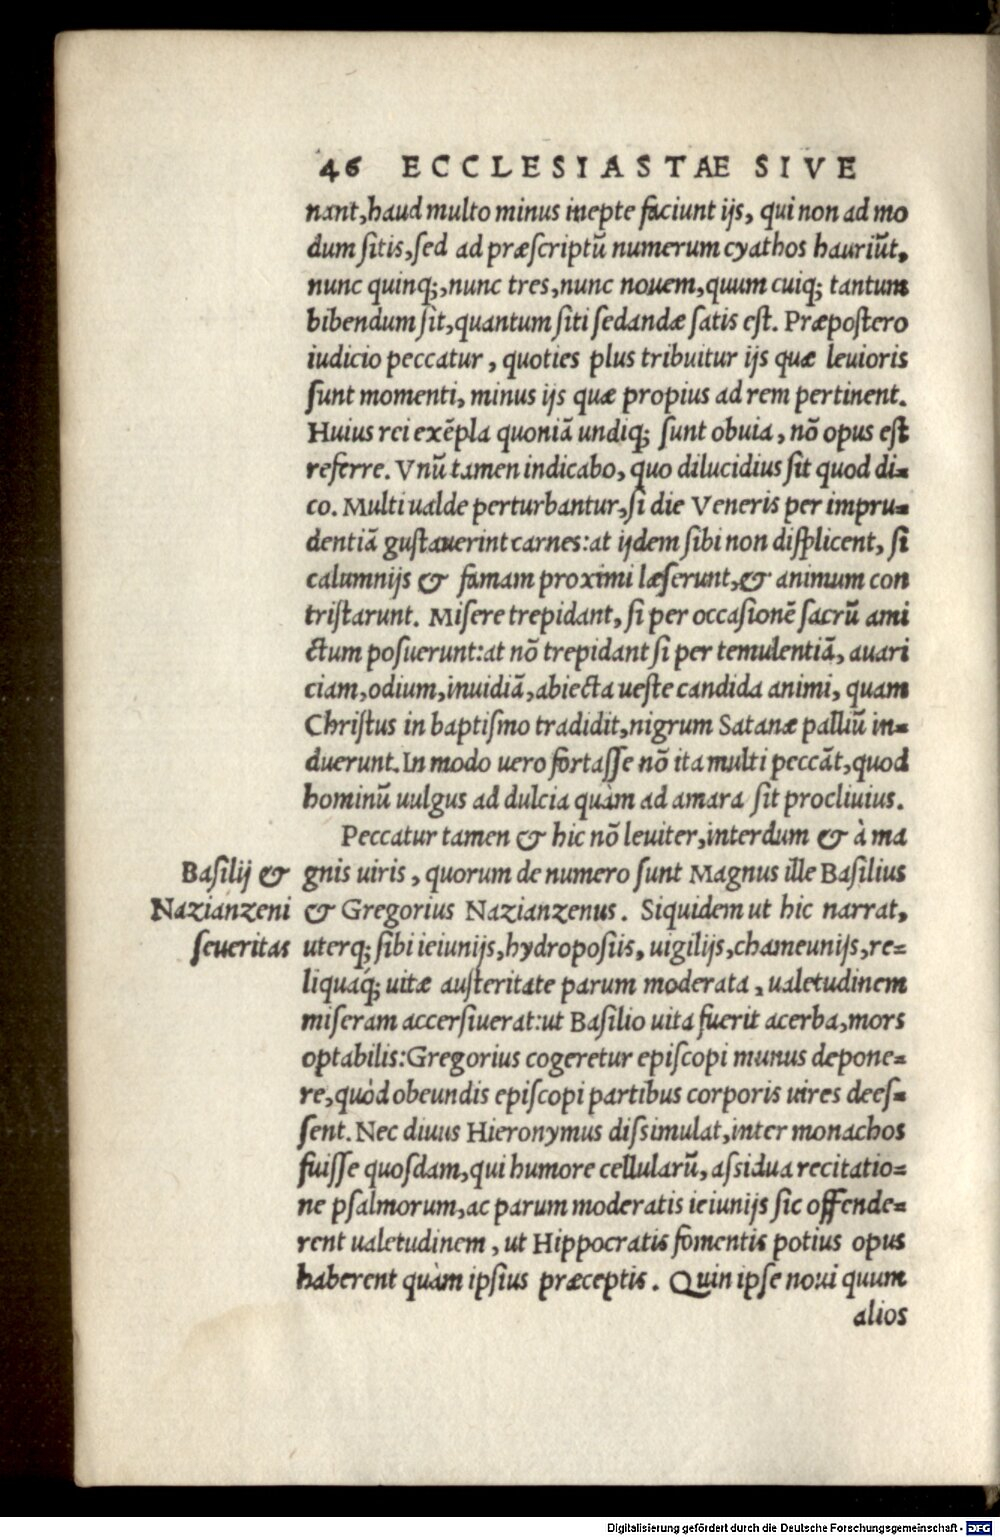 46 ECCLESIASTAE SIVE
nant,haud multo minus inepte faciunt ijs, qui non ad mo
dum ſitis,ſed ad præſcriptũ numerum cyathos hauriũt,
nunc quinq;,nunc tres,nunc nouem,quum cuiq; tantum
bibendum ſit,quantum ſiti ſedandæ ſatis eſt. Præpoſtero
iudicio peccatur, quoties plus tribuitur ijs quæ leuioris
ſunt momenti, minus ijs quæ propius ad rem pertinent.
Huius rei exẽpla quoniã undiq; ſunt obuia, nõ opus eſt
referre. Vnũ tamen indicabo, quo dilucidius ſit quod di=
co. Multi ualde perturbantur,ſi die Veneris per impru=
dentiã guſtauerint carnes:at ijdem ſibi non diſplicent, ſi
calumnijs & famam proximi læſerunt,& animum con
triſtarunt. Miſere trepidant, ſi per occaſionẽ ſacrũ ami
ctum poſuerunt:at nõ trepidant ſi per temulentiã, auari
ciam,odium,inuidiã,abiecta ueſte candida animi, quam
Chriſtus in baptiſmo tradidit,nigrum Satanæ palliũ in=
duerunt.In modo uero fortaſſe nõ ita multi peccãt,quod
hominũ uulgus ad dulcia quàm ad amara ſit procliuius.
Peccatur tamen & hic nõ leuiter,interdum & à ma
Baſilij & gnis uiris, quorum de numero ſunt Magnus ille Baſilius
Nazianzeni & Gregorius Nazianzenus. Siquidem ut hic narrat,
ſeueritas uterq; ſibi ieiunijs,hydropoſiis, uigilijs,chameunijs,re=
liquaq́; uitæ auſteritate parum moderata, ualetudinem
miſeram accerſiuerat:ut Baſilio uita fuerit acerba,mors
optabilis:Gregorius cogeretur epiſcopi munus depone=
re,quòd obeundis epiſcopi partibus corporis uires deeſ=
ſent. Nec diuus Hieronymus diſsimulat,inter monachos
fuiſſe quoſdam,qui humore cellularũ, aſsidua recitatio=
ne pſalmorum,ac parum moderatis ieiunijs ſic offende=
rent ualetudinem, ut Hippocratis fomentis potius opus
haberent quàm ipſius præceptis. Quin ipſe noui quum
alios
Digitalisierung gefördert durch die Deutsche Forschungsgemeinschaft - DFG